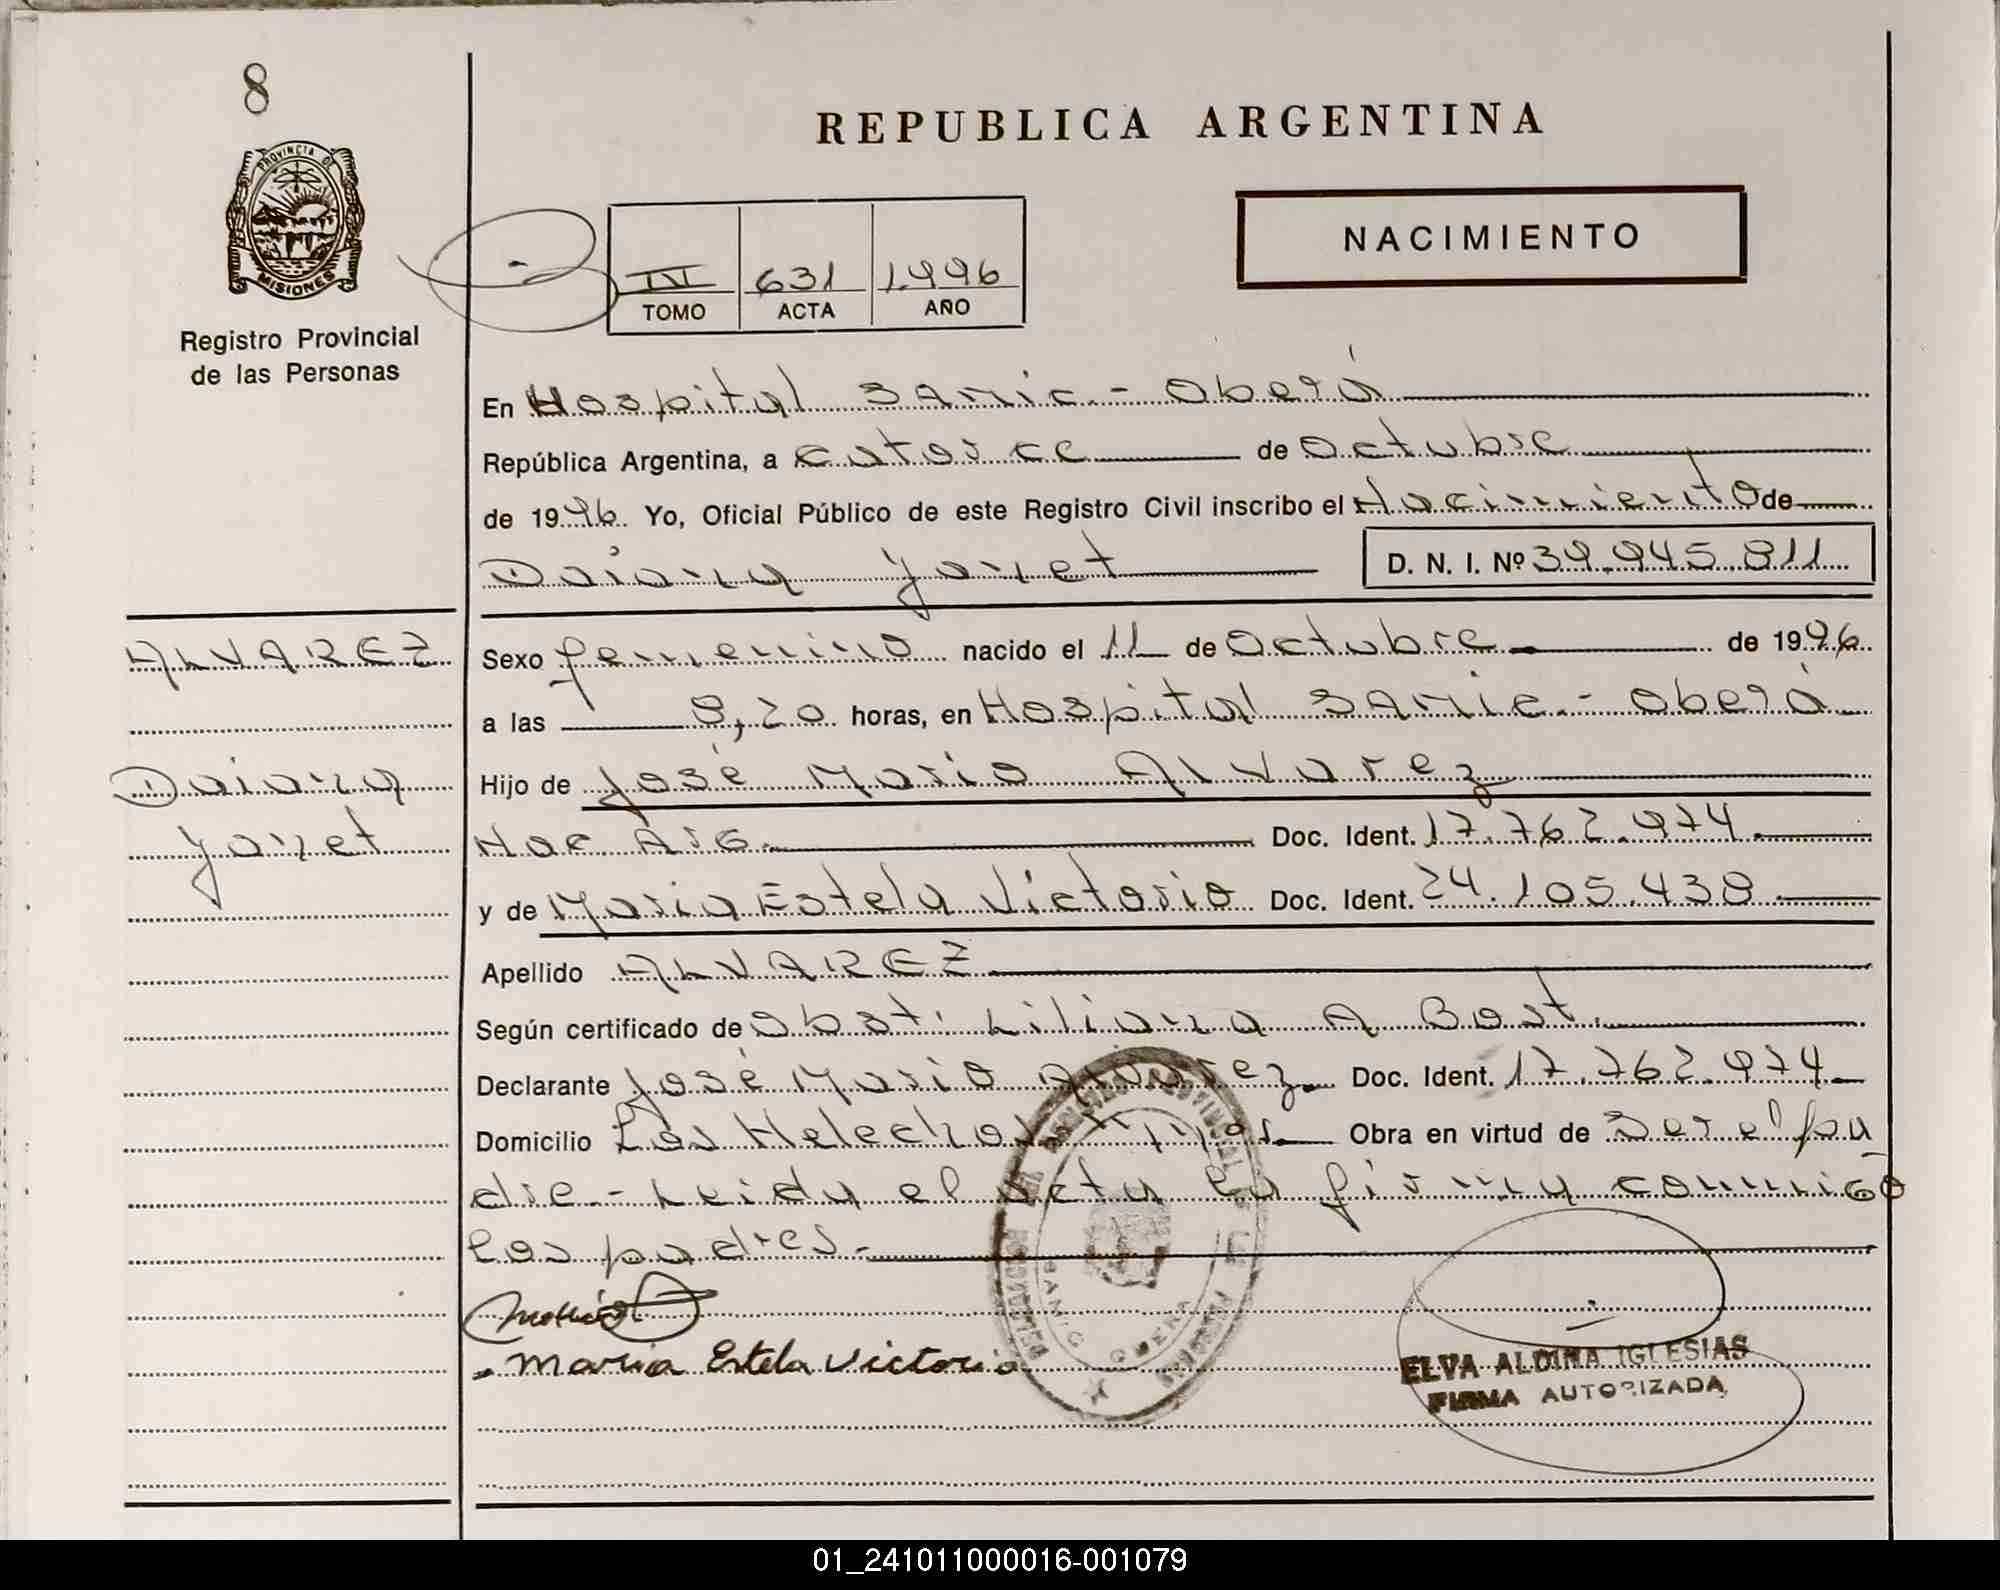 8
REPUBLICA ARGENTINA
PROVINCIA DE
MISIONES
NACIMIENTO
IV 631 1.996
TOMO ACTA AÑO
Registro Provincial
de las Personas
En Hospital SAMIC.- Oberá
República Argentina, a catorce de Octubre
de 1996. Yo, Oficial Público de este Registro Civil inscribo el Nacimiento de
Daiana Yanet D. N. I. Nº 39.945.811
ALVAREZ
Sexo femenino nacido el 11 de Octubre de 1996.
a las 8,20 horas, en Hospital SAMIC.- Oberá
Daiana
Hijo de José Mario Alvarez
Yanet
Nac Arg. Doc. Ident. 17.762.974.
y de Maria Estela Victorio Doc. Ident. 24.105.438.
Apellido ALVAREZ
Según certificado de Obst. Liliana A Bast.
Declarante José Mario Alvarez. Doc. Ident. 17.762.974.
Domicilio Los Helechos Mnes. Obra en virtud de Ser el pa
dre.- Leida el Acta la firman conmigo
los padres.-
Maria Estela Victorio
ELVA ALDINA IGLESIAS
FIRMA AUTORIZADA
01_241011000016-001079